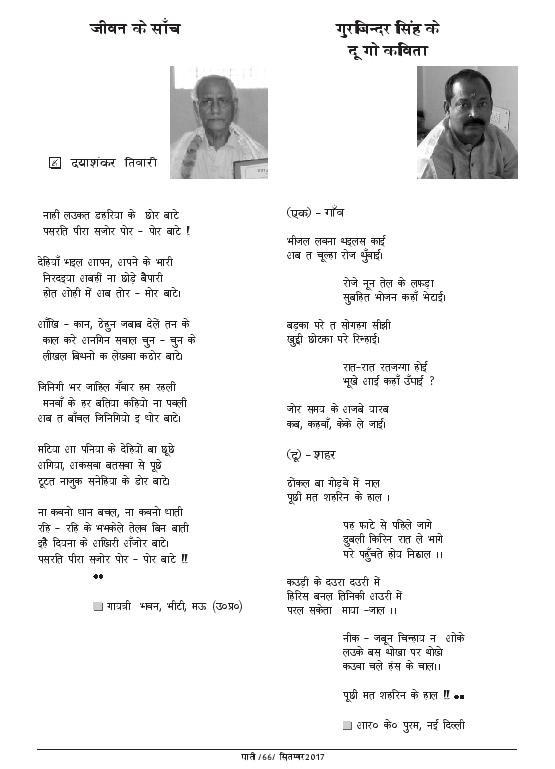 जीवन के साँच
दयाशंकर तिवारी
नाहीं लउकत डहरिया के छोर बाटे
पसरति पीरा सजोर पोर - पोर बाटे !
देहियाँ भइल आपन, अपने के भारी
निरदइया अबहीं ना छोड़े बैपारी
होत ओही में अब तोर - मोर बाटे।
आँखि - कान, ठेहुन जबाब देलें तन के
काल करे अनगिन सवाल चुन - चुन के
लीखल बिधनो क लेखवा कठोर बाटे।
जिनिगी भर जाहिल गँवार हम रहली
मनवाँ के हर बतिया कहियो ना पवली
अब त बाँचल जिनिगियो इ थोर बाटे।
मटिया आ पनिया के देहियाँ बा छूछे
अगिया, अकसवा बतसवा से पूछे
टूटत नाजुक सनेहिया के डोर बाटे।
ना कवनो थान बचल, ना कवनो थाती
रहि - रहि के भभकेले तेलव बिन बाती
इहै दियना के अखिरी अँजोर बाटे।
पसरति पीरा सजोर पोर - पोर बाटे !!
गायत्री भवन, भीटी, मऊ (उ०प्र०)
गुरबिन्दर सिंह के
दू गो कविता
(एक) - गाँव
भीजल लवना थइलस काई
अब त चूल्हा रोज धुँवाई।
रोजे नून तेल के लफड़ा
सुबहित भोजन कहाँ भेटाई।
बड़का परे त सोगहग सीझी
खुद्दी छोटका परे रिन्हाई।
रात-रात रतजग्गा होई
भूखे आई कहाँ उँघाई ?
जोर समय के अजबे यारब
कब, कहवाँ, केके ले जाई।
(दू) - शहर
ठोंकल बा गोड़वे में नाल
पूछी मत शहरिन के हाल ।
पह फाटे से पहिले जागे
डुबली किरिन रात ले भागे
घरे पहुँचते होय निढाल ।।
कउड़ी के दउरा दउरी में
हिरिस बनल तिनिकी अउरी में
परल सकेता माया -जाल ।।
नीक - जबून चिन्हाय न ओके
लउके बस धोखा पर धोखे
कउवा चले हंस के चाल।।
पूछी मत शहरिन के हाल !!
आर० के० पुरम, नई दिल्ली
पाती /66/ सितम्बर 2017